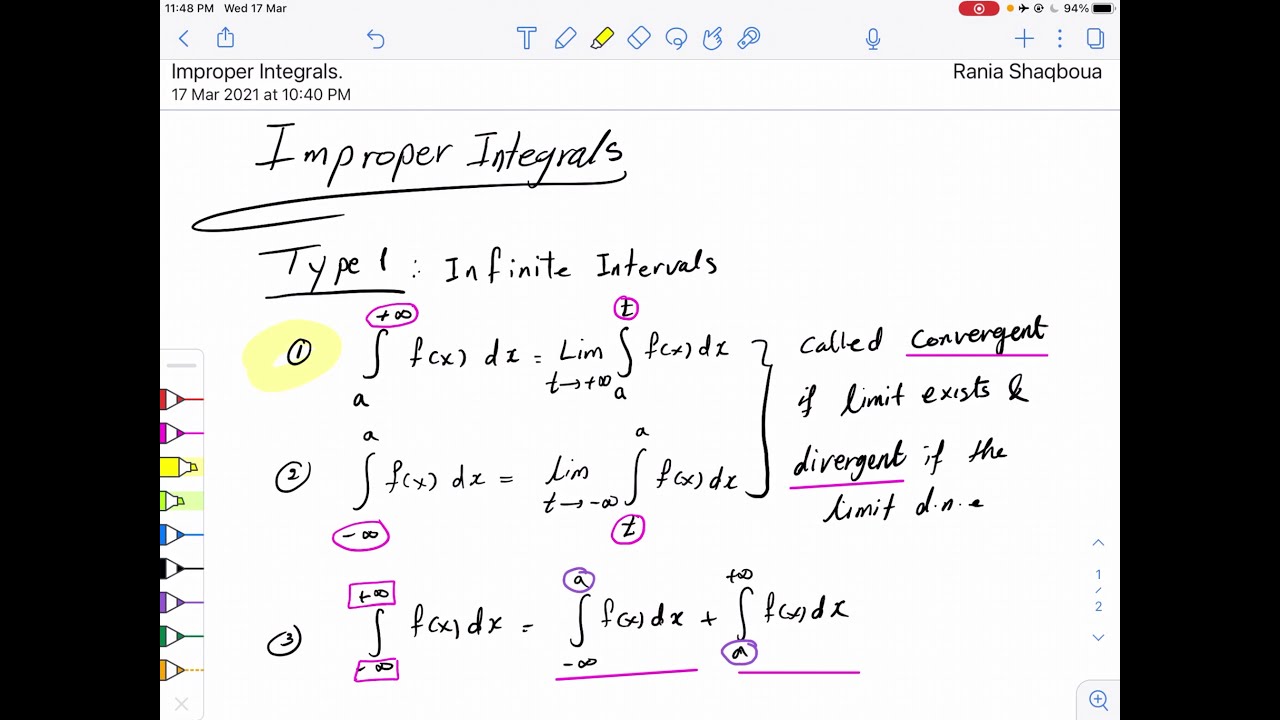 11:48 PM Wed 17 Mar 94%
Improper Integrals. Rania Shaqboua
17 Mar 2021 at 10:40 PM
Improper Integrals
Type 1 : Infinite Intervals
① ∫ₐ^{+∞} f(x) dx = Lim_{t→+∞} ∫ₐ^{t} f(x) dx
② ∫_{-∞}^{a} f(x) dx = lim_{t→-∞} ∫_{t}^{a} f(x) dx
called convergent
if limit exists &
divergent if the
limit d.n.e
③ ∫_{-∞}^{+∞} f(x) dx = ∫_{-∞}^{a} f(x) dx + ∫_{a}^{+∞} f(x) dx
1
/
2